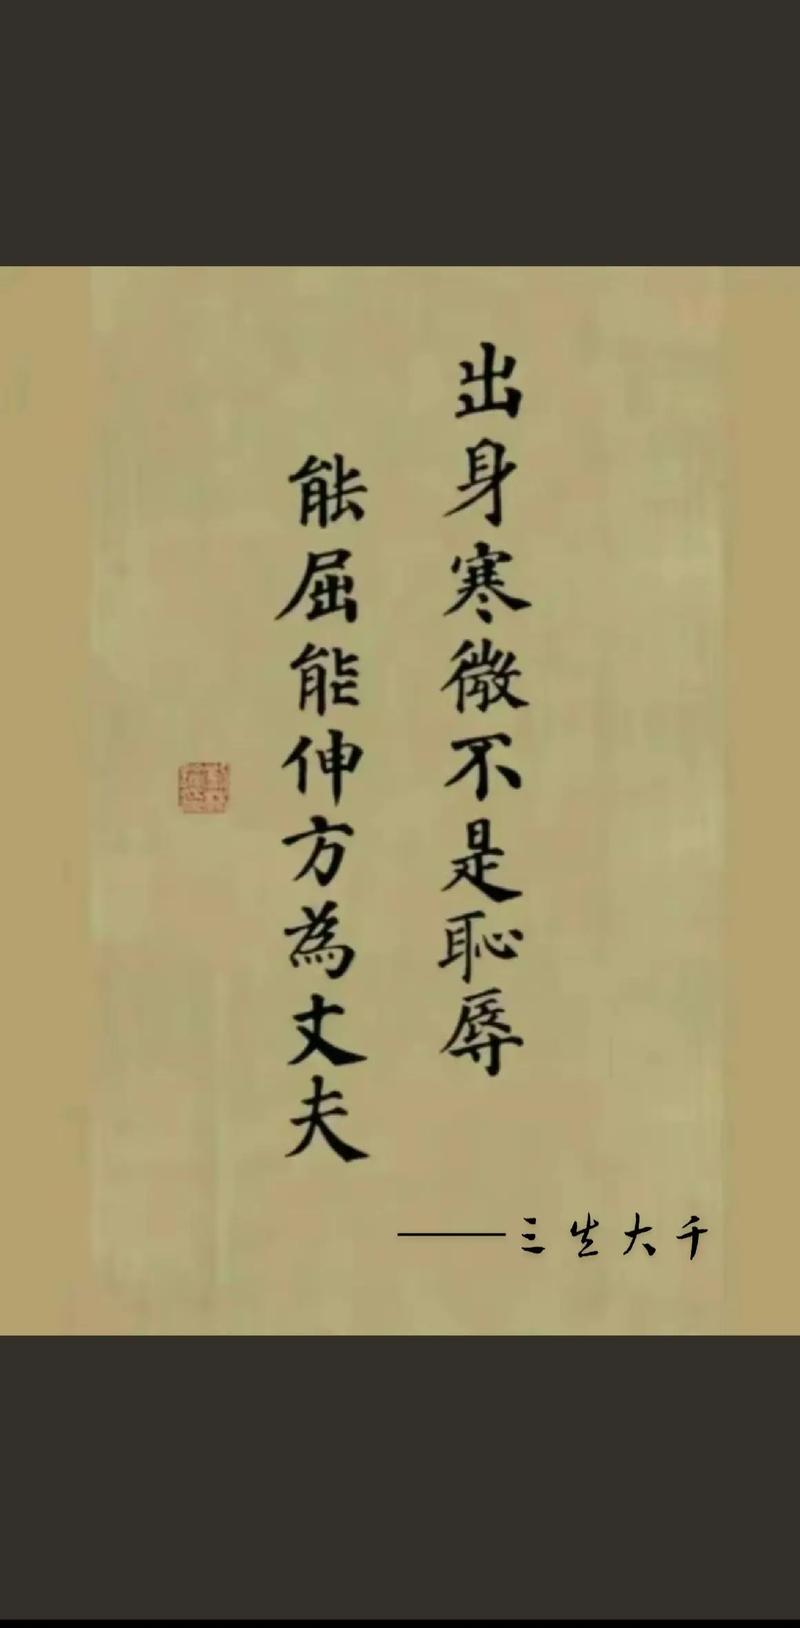 出身寒微不是恥辱
能屈能伸方為丈夫
——三生大千